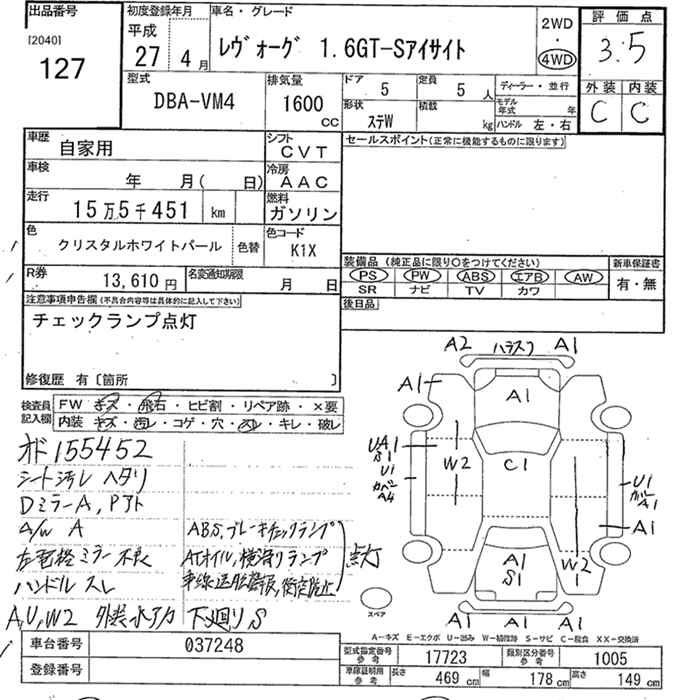 出品番号
[2040]
127
初度登録年月
平成
27 4 月
車名・グレード
レヴォーグ 1.6GT-Sアイサイト
2WD
・
4WD
評価点
3.5
外装 内装
C C
型式
DBA-VM4
排気量
1600
cc
ドア
5
定員
5 人
形状
ステW
積載
kg
ディーラー・並行
モデル年式 年
ハンドル 左・右
車歴
自家用
シフト
CVT
車検
年 月( 日)
冷房
AAC
走行
15万5千451 km
燃料
ガソリン
色
クリスタルホワイトパール
色替
色コード
K1X
R券
13,610円
名変通知期限
月 日
セールスポイント(正常に機能するものに限ります)
装備品(純正品に限り○をつけてください)
PS PW ABS エアB AW
SR ナビ TV カワ
新車保証書
有・無
後日品
注意事項申告欄(不具合内容等は具体的に記入して下さい)
チェックランプ点灯
修復歴 有〔箇所 〕
検査員記入欄
FW キズ・飛石・ヒビ割・リペア跡・×要
内装 キズ・汚レ・コゲ・穴・スレ・キレ・破レ
オド155452
シート汚レ ヘタリ
DミラーA, Pアト
A/W A
左電格ミラー不良
ハンドルスレ
A,U,W2 外装水アカ 下廻りS
ABS, ブレーキチェックランプ
ATオイル, 横滑りランプ 点灯
車線逸脱警報, 衝突防止
A2 ハラスフ A1
A1
A1
UA1
S1
U1
カバー
A4
W2
C1
U1
カバー
A1
A1
A1
S1
W2
1
A1 A1 A1
スペア
A-キズ E-エクボ U-凹み W-補修跡 S-サビ C-腐食 XX-交換済
車台番号
037248
登録番号
型式指定番号
参考
17723
類別区分番号
参考
1005
車庫証明用
参考
長さ 469 cm 幅 178 cm 高さ 149 cm